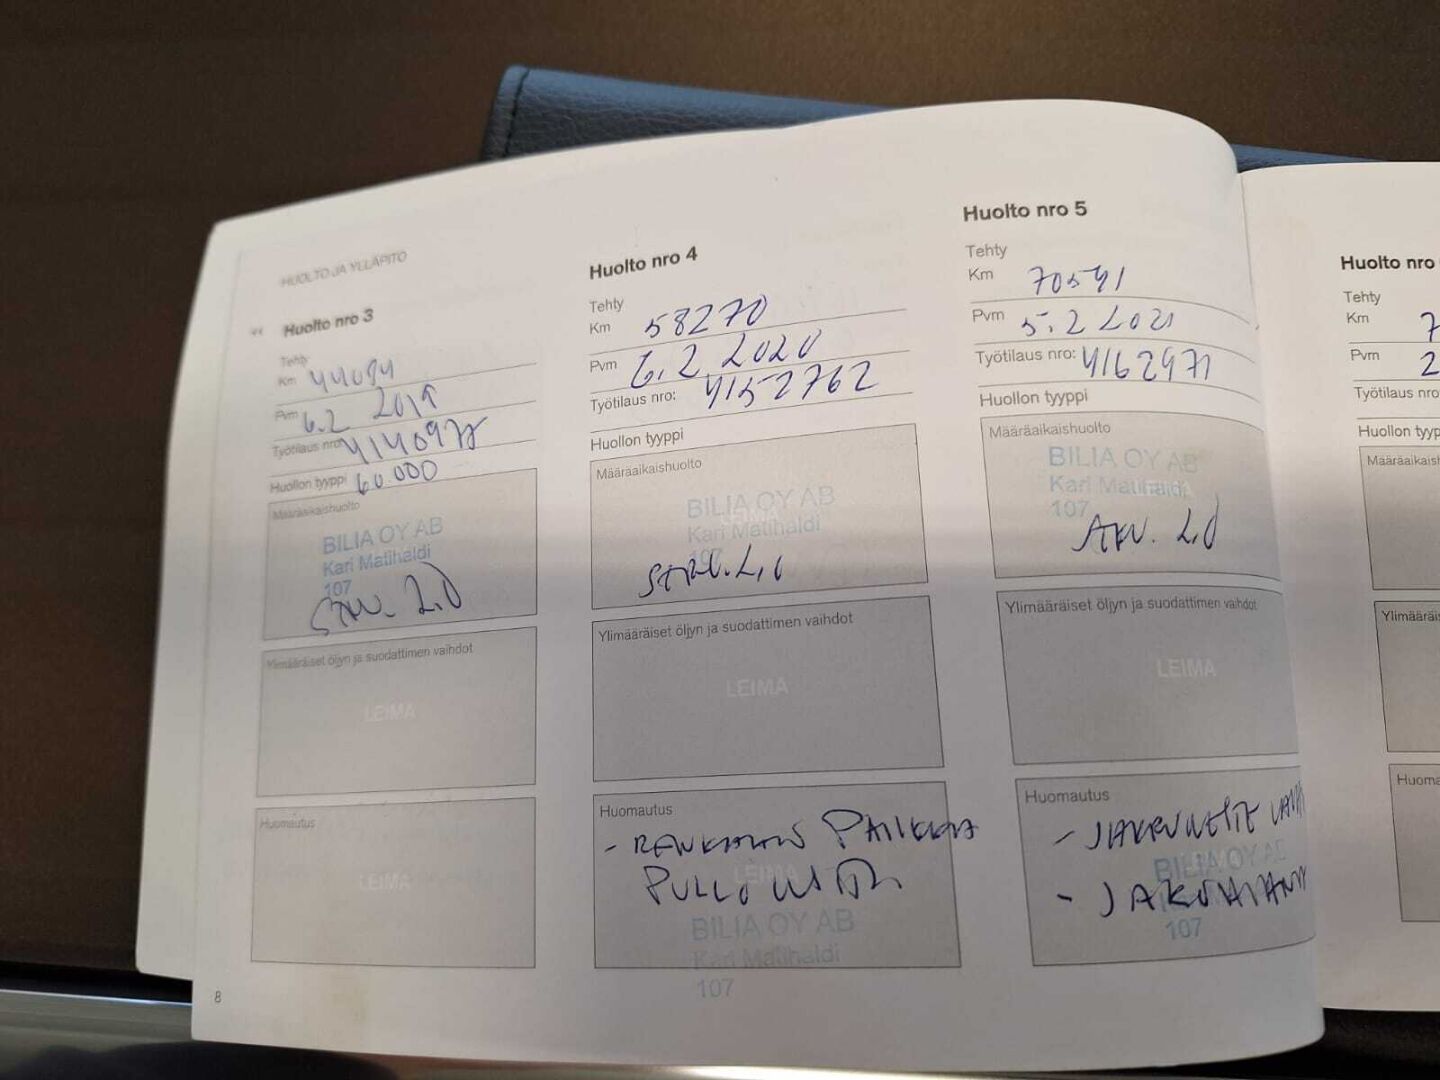 HUOLTO JA YLLÄPITO
Huolto nro 3
Tehty
Km 44094
Pvm 6.2 2019
Työtilaus nro: 4140977
Huollon tyyppi 60.000
Määräaikaishuolto
BILIA OY AB
Kari Matihaldi
107
2,0
Ylimääräiset öljyn ja suodattimen vaihdot
LEIMA
Huomautus
LEIMA
8
Huolto nro 4
Tehty
Km 58270
Pvm 6.2.2020
Työtilaus nro: 4152762
Huollon tyyppi
Määräaikaishuolto
BILIA OY AB
Kari Matihaldi
107
Ylimääräiset öljyn ja suodattimen vaihdot
LEIMA
Huomautus
- RENKAIDEN PAIKKA
LEIMA
BILIA OY AB
Kari Matihaldi
107
Huolto nro 5
Tehty
Km 70541
Pvm 5.2 2021
Työtilaus nro: 4162971
Huollon tyyppi
Määräaikaishuolto
BILIA OY AB
Kari Matihaldi
107
2,0
Ylimääräiset öljyn ja suodattimen vaihdot
LEIMA
Huomautus
- JARRUNESTE
BILIA OY AB
107
Huolto nro
Tehty
Km 7
Pvm 2
Työtilaus nro
Huollon